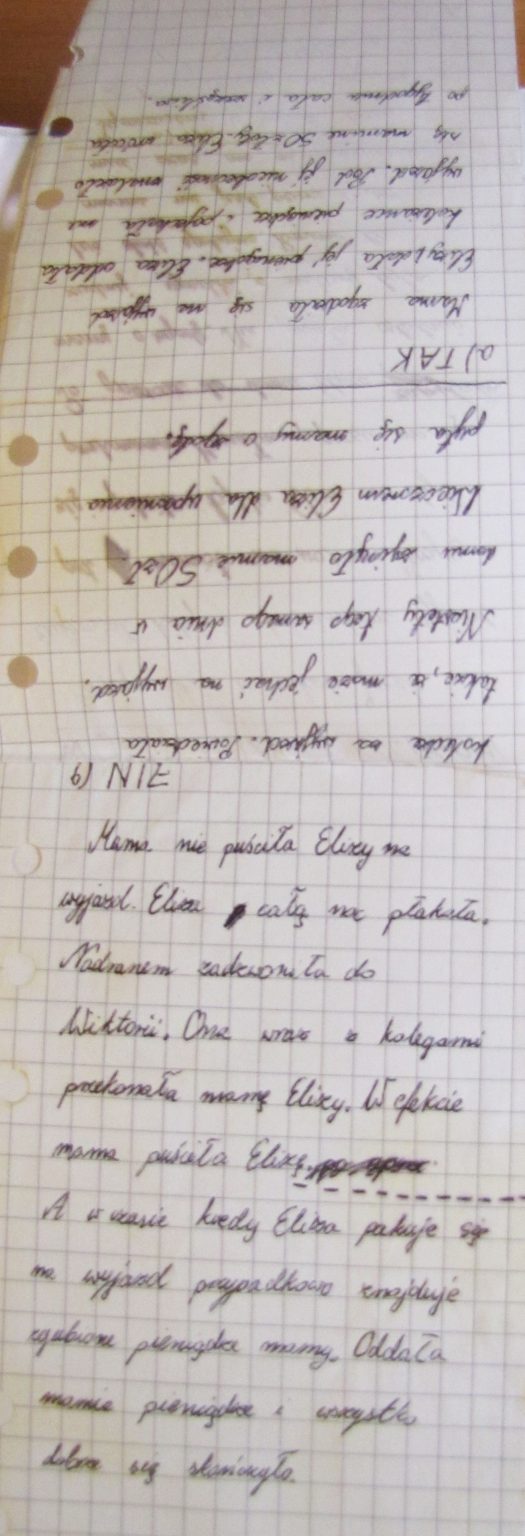 za wyjazd. Powiedziała
także, iż może jechać na wyjazd.
Niestety tego samego dnia w
domu zginęło mamie 50zł.
Wieczorem Eliza dla upewnienia
pyta się mamy o zgodę.
a) TAK
Mama zgodziła się na wyjazd
Elizy i dała jej pieniądze. Eliza oddała
koleżance pieniądze i pojechała na
wyjazd. Pod jej nieobecność znalazło
się mamine 50 złoty. Eliza wróciła
po tygodniu cała i szczęśliwa.
b) NIE
Mama nie puściła Elizy na
wyjazd. Eliza całą noc płakała.
Nadranem zadzwoniła do
Wiktorii. Ona wraz z kolegami
przekonała mamę Elizy. W efekcie
mama puściła Elizę.
A w czasie kiedy Eliza pakuje się
na wyjazd przypadkowo znajduje
zgubione pieniądze mamy. Oddała
mamie pieniądze i wszystko
dobrze się skończyło.